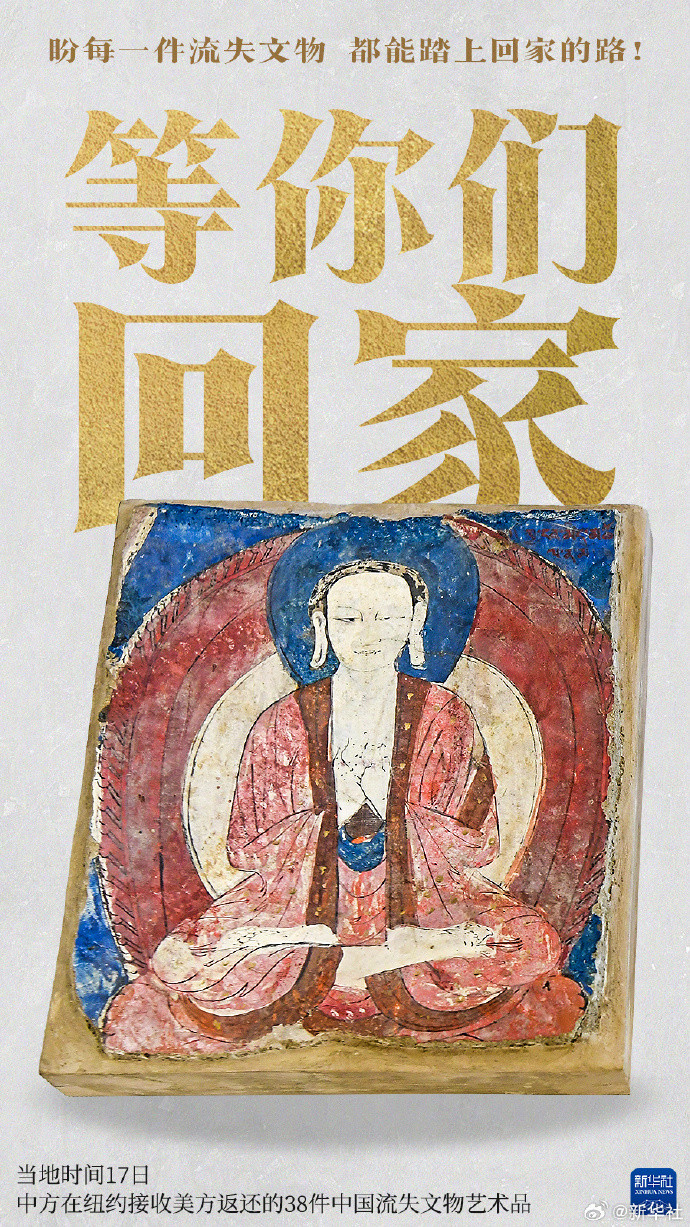 盼每一件流失文物 都能踏上回家的路！
等你们
回家
当地时间17日
中方在纽约接收美方返还的38件中国流失文物艺术品
新华社
XINHUA NEWS
新华社
@新华社